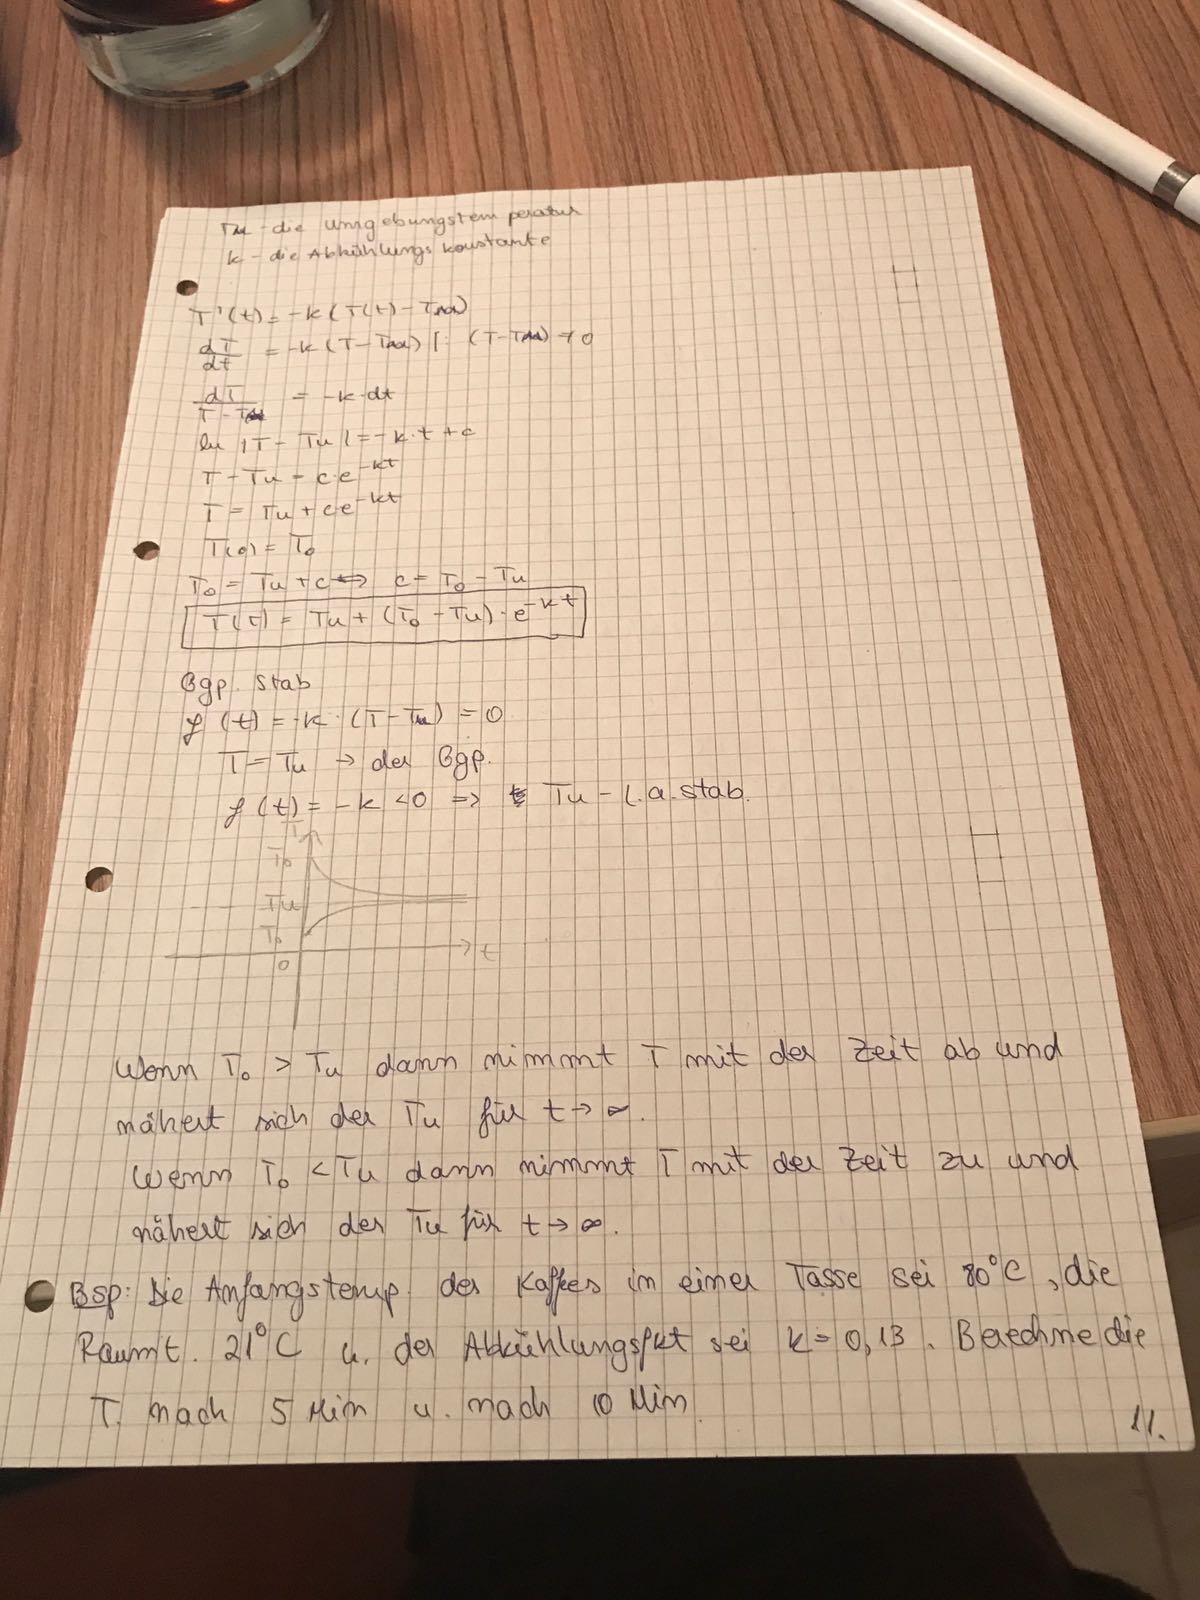 Tu - die Umgebungstemperatur
k - die Abkühlungskonstante
T'(t) = -k (T(t) - Tu)
dT/dt = -k (T - Tu) |: (T - Tu) ≠ 0
dT/(T - Tu) = -k·dt
ln |T - Tu| = -k·t + c
T - Tu = c·e^-kt
T = Tu + c e^-kt
T(0) = T₀
T₀ = Tu + c ⟺ c = T₀ - Tu
T(t) = Tu + (T₀ - Tu)·e^-kt
Ggp. stab
f (t) = -k · (T - Tu) = 0
T = Tu → der Ggp.
f (t) = -k < 0 => Tu - l.a. stab.
T
T₀
Tu
T₀
0
t
Wenn T₀ > Tu dann nimmt T mit der Zeit ab und
nähert sich der Tu für t → ∞.
Wenn T₀ < Tu dann nimmt T mit der Zeit zu und
nähert sich der Tu für t → ∞.
Bsp: Die Anfangstemp. des Kaffes in einer Tasse sei 80°C, die
Raumt. 21°C u. der Abkühlungsfkt sei k = 0,13. Berechne die
T. nach 5 Min u. nach 10 Min.
11.